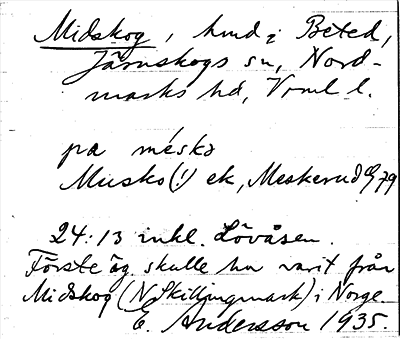 Midskog, hmd i Beted,
Järnskogs sn, Nord-
marks hd, Vrml l.
pa mésko
Musko (!) ek, Meskerud Eg 79
24:13 inkl. Lövåsen.
Förste äg. skulle ha varit från
Midskog (N Skillingmark) i Norge.
E. Andersson 1935.